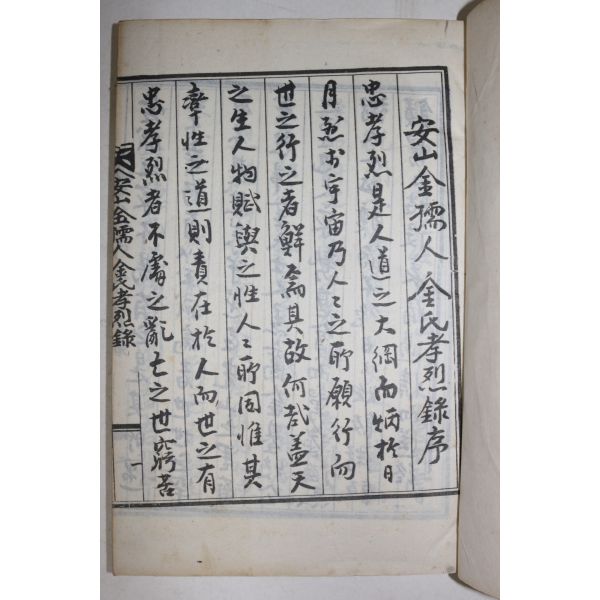 安山金孺人金氏孝烈錄序
忠孝烈是人道之大綱而炳於日
月烈於宇宙乃人々之所願行而
世之行之者鮮矣其故何哉盖天
之生人物賦與之性人々所固惟其
率性之道則責在於人而世之有
忠孝烈者不處之亂亡之世窮苦
安山金孺人金氏孝烈錄
一